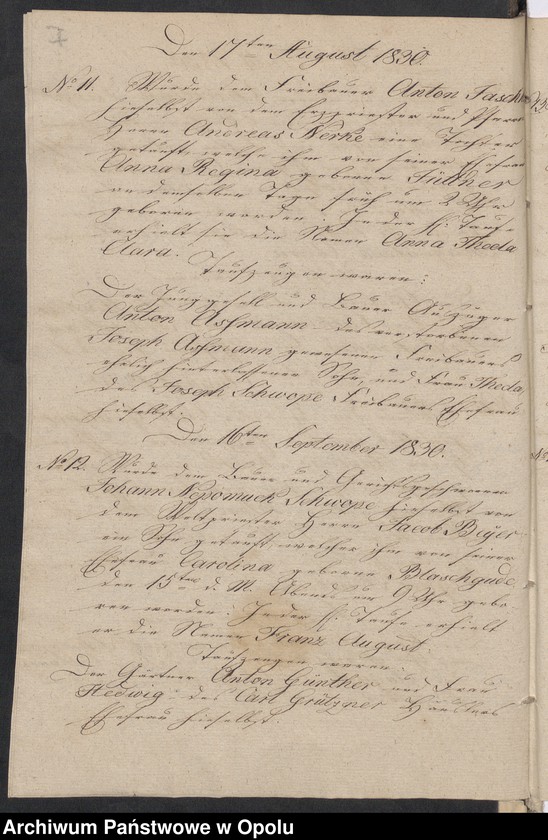 Den 17ten August 1830.
No 11. Wurde dem Freibauer Anton
hieselbst von dem Erzpriester und Pfarrer
Herrn Andreas Nerke eine Tochter
getauft, welche ihm von seiner Ehefrau
Anna Regina geborne Füdner
an demselben Tage früh um 2 Uhr
geboren worden. In der h. Taufe
erhielt sie die Namen Anna Theela
Clara.
Taufzeugen waren:
Der Junggesell und Bauer Auszüger
Anton Assmann des verstorbenen
Joseph Assmann gewesenen Freibauers
ehelich hinterlassener Sohn, und Frau Theela,
des Joseph Schwope Freibauers Ehefrau
hieselbst.
Den 16ten September 1830.
No 12. Wurde dem Bauer und Gerichtsgeschwornen
Johann Nepomuck Schwope hieselbst von
dem Weltpriester Herrn Jacob Beÿer
ein Sohn getauft, welcher ihm von seiner
Ehefrau Carolina geborne Blaschgude,
den 15ten d. M. Abends um 9 Uhr gebo-
ren worden. In der h. Taufe erhielt
er die Namen Franz August.
Taufzeugen waren.
Der Gärtner Anton Günther und Frau
Hedwig des Carl Grützner Häuslers
Ehefrau hieselbst.
Archiwum Państwowe w Opolu